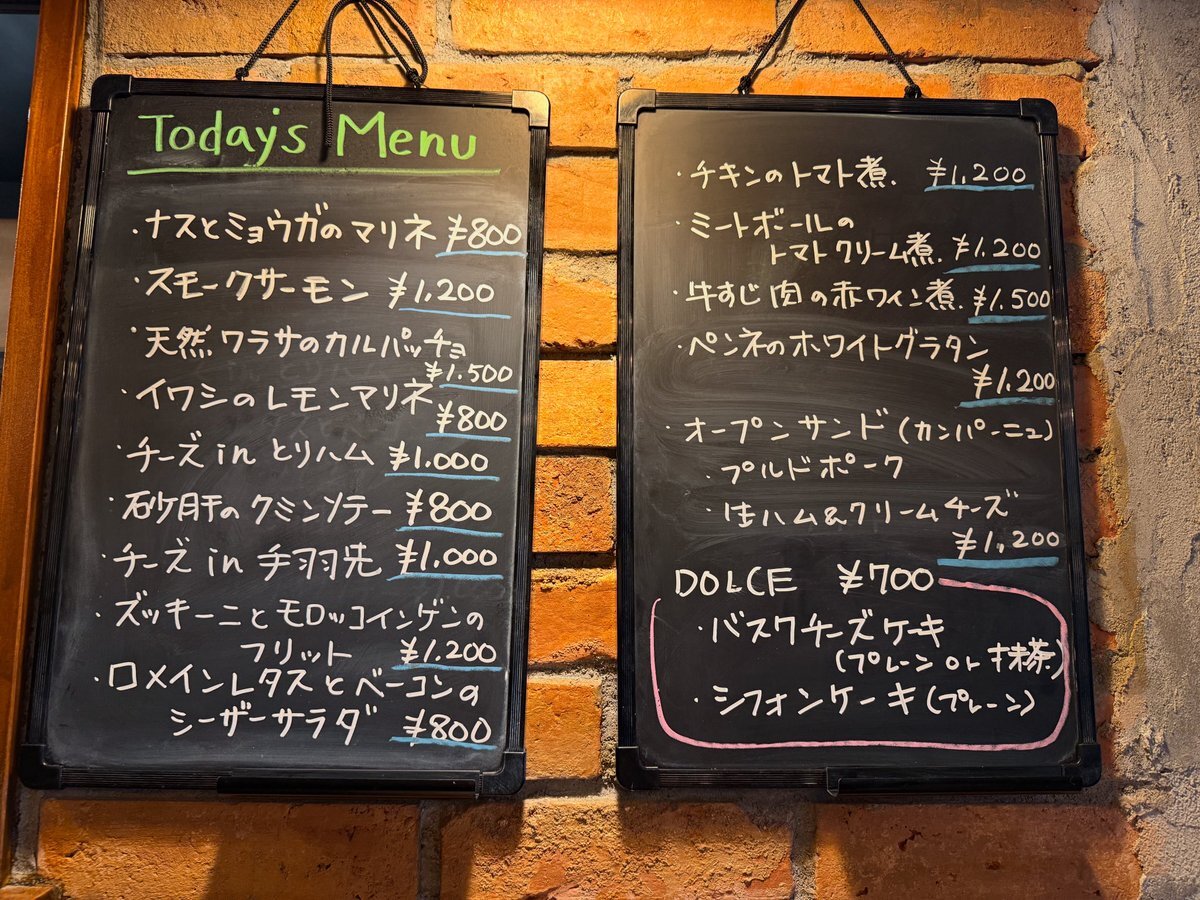 Today's Menu
・ナスとミョウガのマリネ ¥800
・スモークサーモン ¥1,200
・天然ワラサのカルパッチョ
¥1.500
・イワシのレモンマリネ
¥800
・チーズinとりハム ¥1.000
・砂肝のクミンソテー ¥800
・チーズin手羽先 ¥1.000
・ズッキーニとモロッコインゲンの
フリット ¥1.200
・ロメインレタスとベーコンの
シーザーサラダ ¥800
・チキンのトマト煮. ¥1,200
・ミートボールの
トマトクリーム煮. ¥1.200
・牛すじ肉の赤ワイン煮. ¥1.500
・ペンネのホワイトグラタン
¥1.200
・オープンサンド(カンパーニュ)
・プルドポーク
・生ハム&クリームチーズ
¥1,200
DOLCE ¥700
・バスクチーズケーキ
(プレーン or 抹茶)
・シフォンケーキ(プレーン)